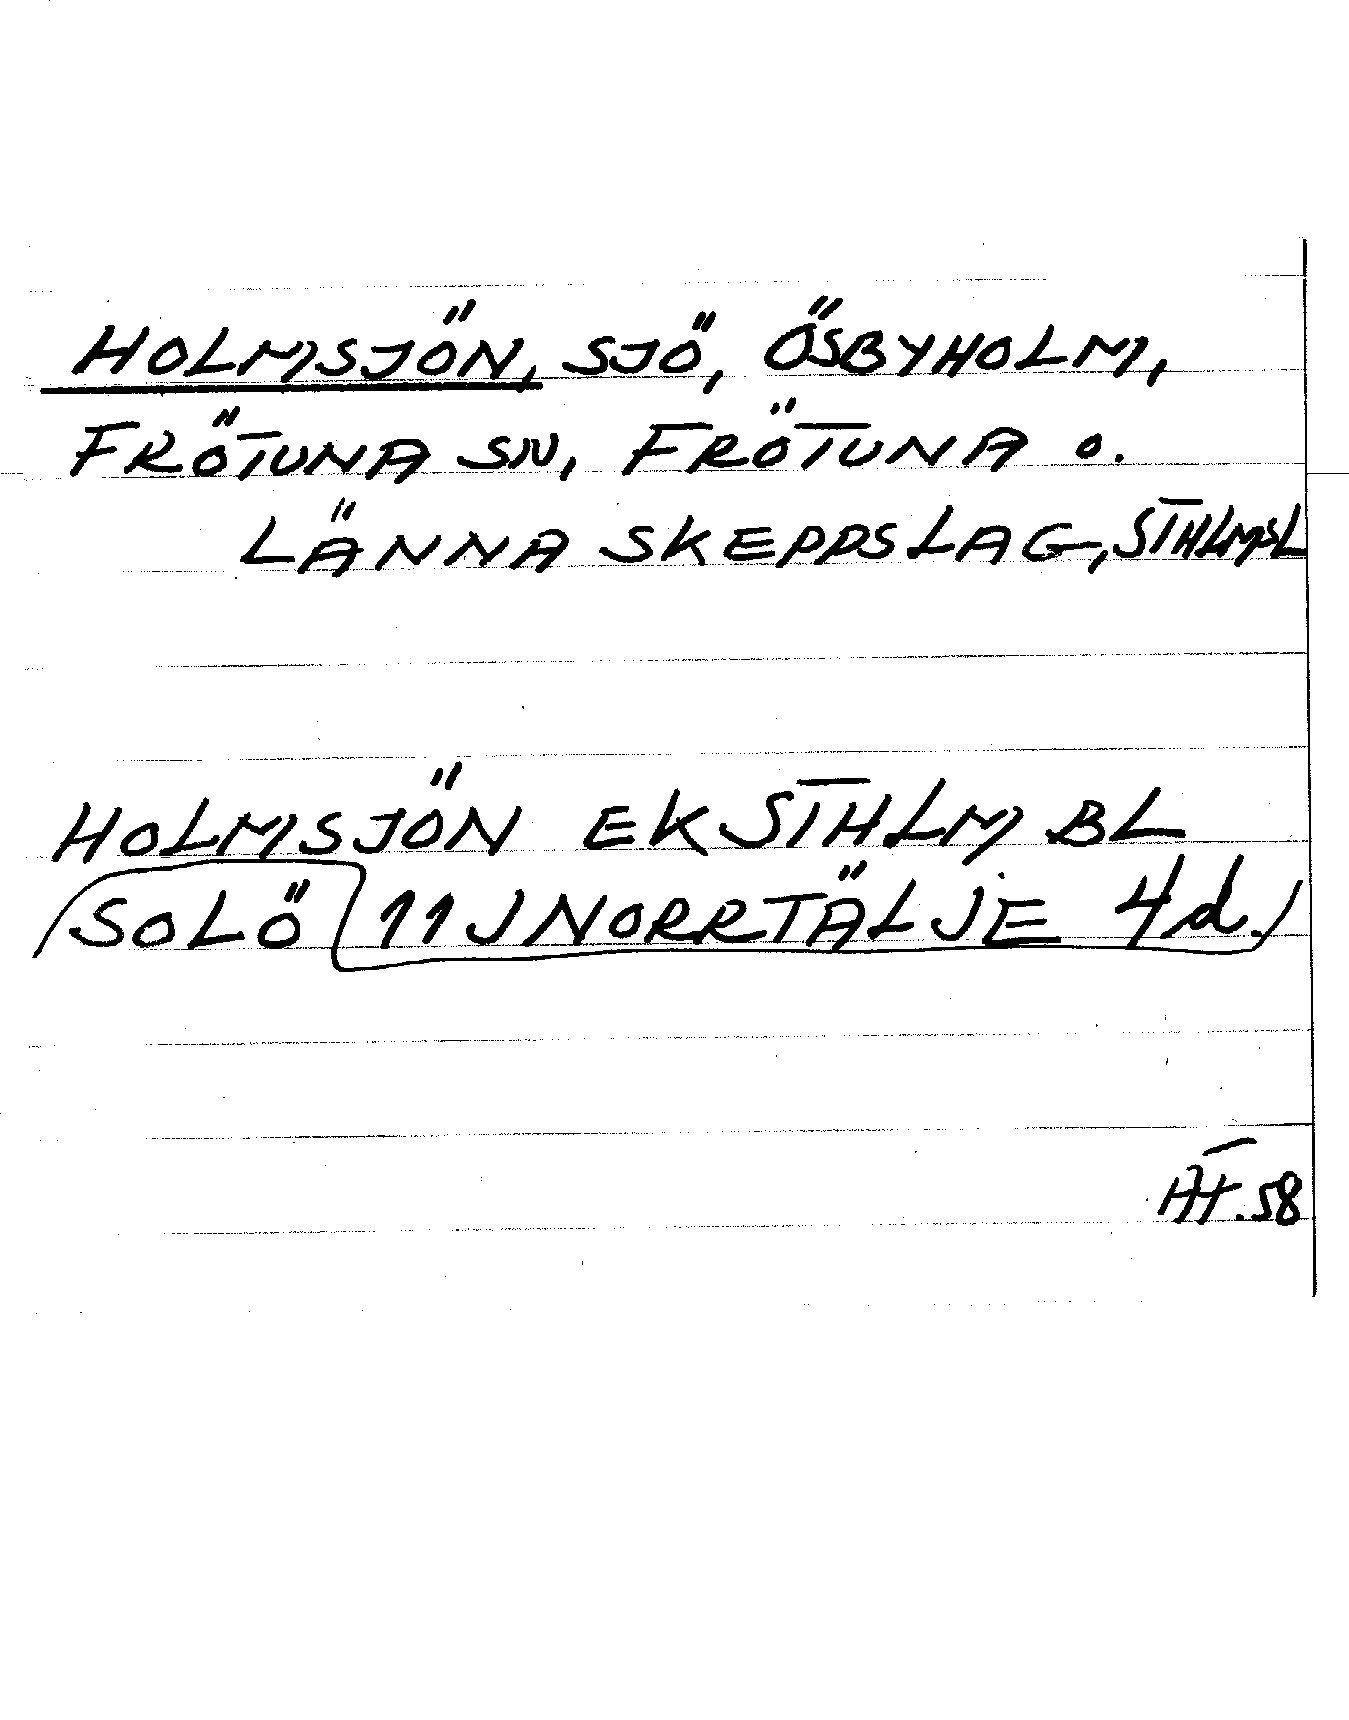 HOLMSJÖN, SJÖ, ÖSBYHOLM,
FRÖTUNA SN, FRÖTUNA O.
LÄNNA SKEPPSLAG, STHLMSL
HOLMSJÖN EK STHLM BL
SOLÖ 11J NORRTÄLJE 4d.
ÅT. 58